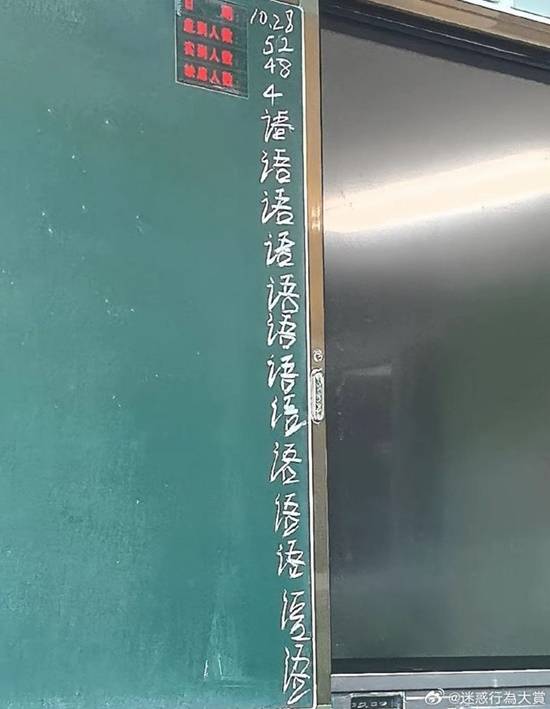 日 期 10.28
应到人数 52
实到人数 48
缺席人数 4
语
语
语
语
语
语
语
语
语
语
语
语
语
@迷惑行為大賞